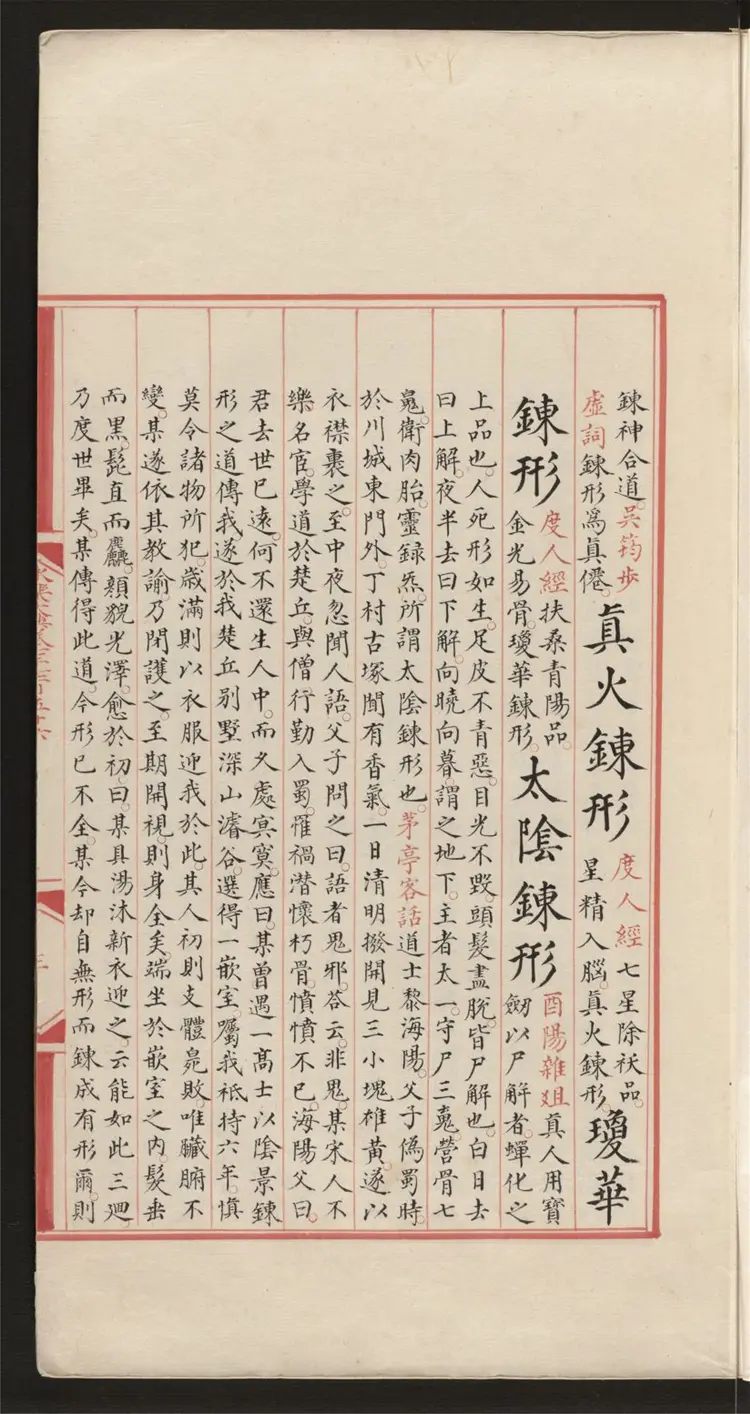 鍊神合道。吳筠步
虛詞鍊形爲眞僊。
眞火鍊形
度人經七星除祅品。
星精入腦。眞火鍊形。
瓊華
鍊形
度人經扶桑青陽品。
金光易骨。瓊華鍊形。
太陰鍊形
酉陽雜俎眞人用寶
劒以尸解者。蟬化之
上品也。人死形如生。足皮不青惡。目光不毀。頭髮盡脫。皆尸解也。白日去
曰上解。夜半去曰下解。向曉向暮。謂之地下。主者太一。守尸三䰟。營骨七
䰟。衛肉胎。靈録炁。所謂太陰鍊形也。茅亭客話道士黎海陽。父子僞蜀時。
於川城東門外。丁村古塚間有香氣。一日清明撥開見三小塊雄黃。遂以
衣襟裹之。至中夜忽聞人語。父子問之曰。語者鬼邪。荅云。非鬼。某宋人不
樂名宦。學道於楚丘。與僧行勤入蜀。罹禍潛懷朽骨。憤憤不已。海陽父曰。
君去世已遠。何不還生人中。而久處冥寞。應曰。某曾遇一高士以陰景鍊
形之道傳我。遂於我楚丘別墅深山濬谷。選得一嵌室。囑我祗持六年。愼
莫令諸物所犯。歲滿則以衣服迎我於此。其人初則支體臰敗。唯臟腑不
變。某遂依其教諭。乃閉護之。至期開視。則身全矣。端坐於嵌室之內。髮垂
而黑。髭直而麤。顏貌光澤。愈於初。曰。某具湯沐新衣迎之。云能如此三迴。
乃度世畢矣。某傳得此道。今形已不全。某今却自無形而鍊成有形爾。則